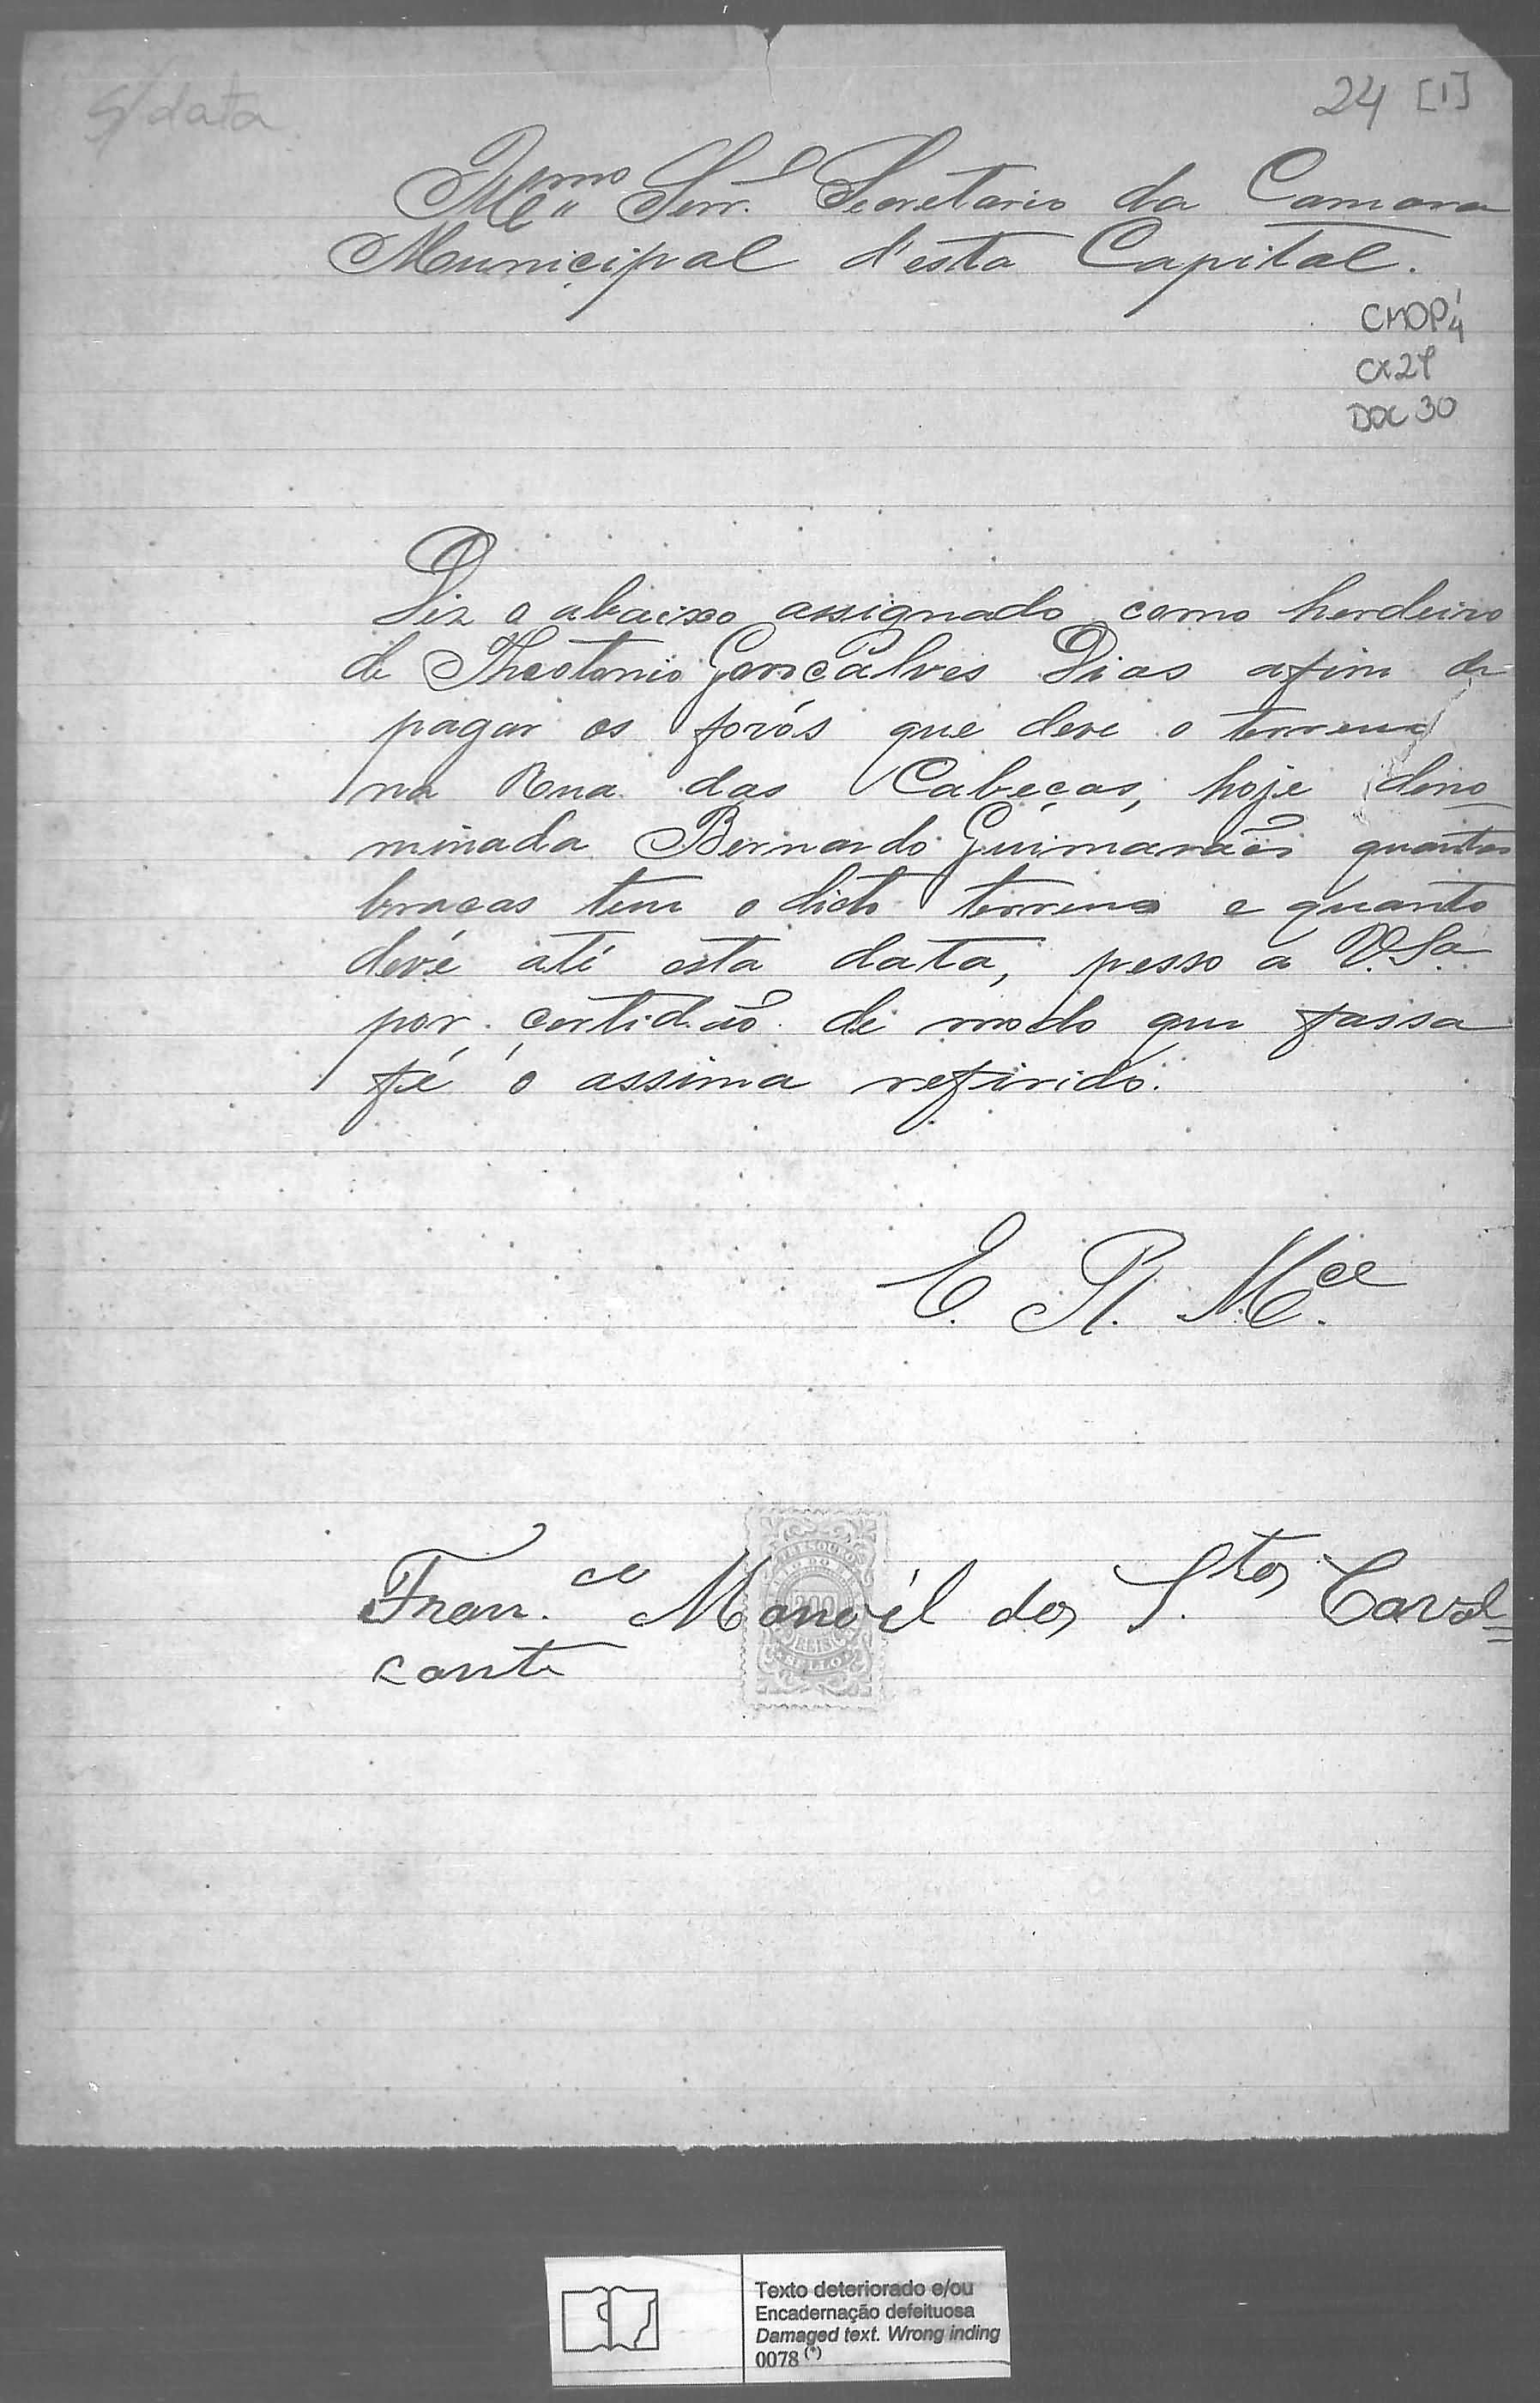 S/data
24 [1]
Illmo Senr. Secretario da Camara
Municipal d'esta Capital.
CMOP 4
CX 29
DOC 30
Diz o abaixo assignado como herdeiro
de Theotonio Gonçalves Dias afim de
pagar os foros que deve o terreno
na Rua das Cabeças, hoje deno
minada Bernardo Guimarães quantas
braças tem o dicto terreno e quanto
deve até esta data, pesso a V.Sa.
por certidão de modo que fassa
fé o assima referido.
E. R. Mce.
Fran.co Manoél dos S.tos Caval=
cante
THESOURO
200
REIS
SELLO
Texto deteriorado e/ou
Encadernação defeituosa
Damaged text. Wrong inding
0078 (*)